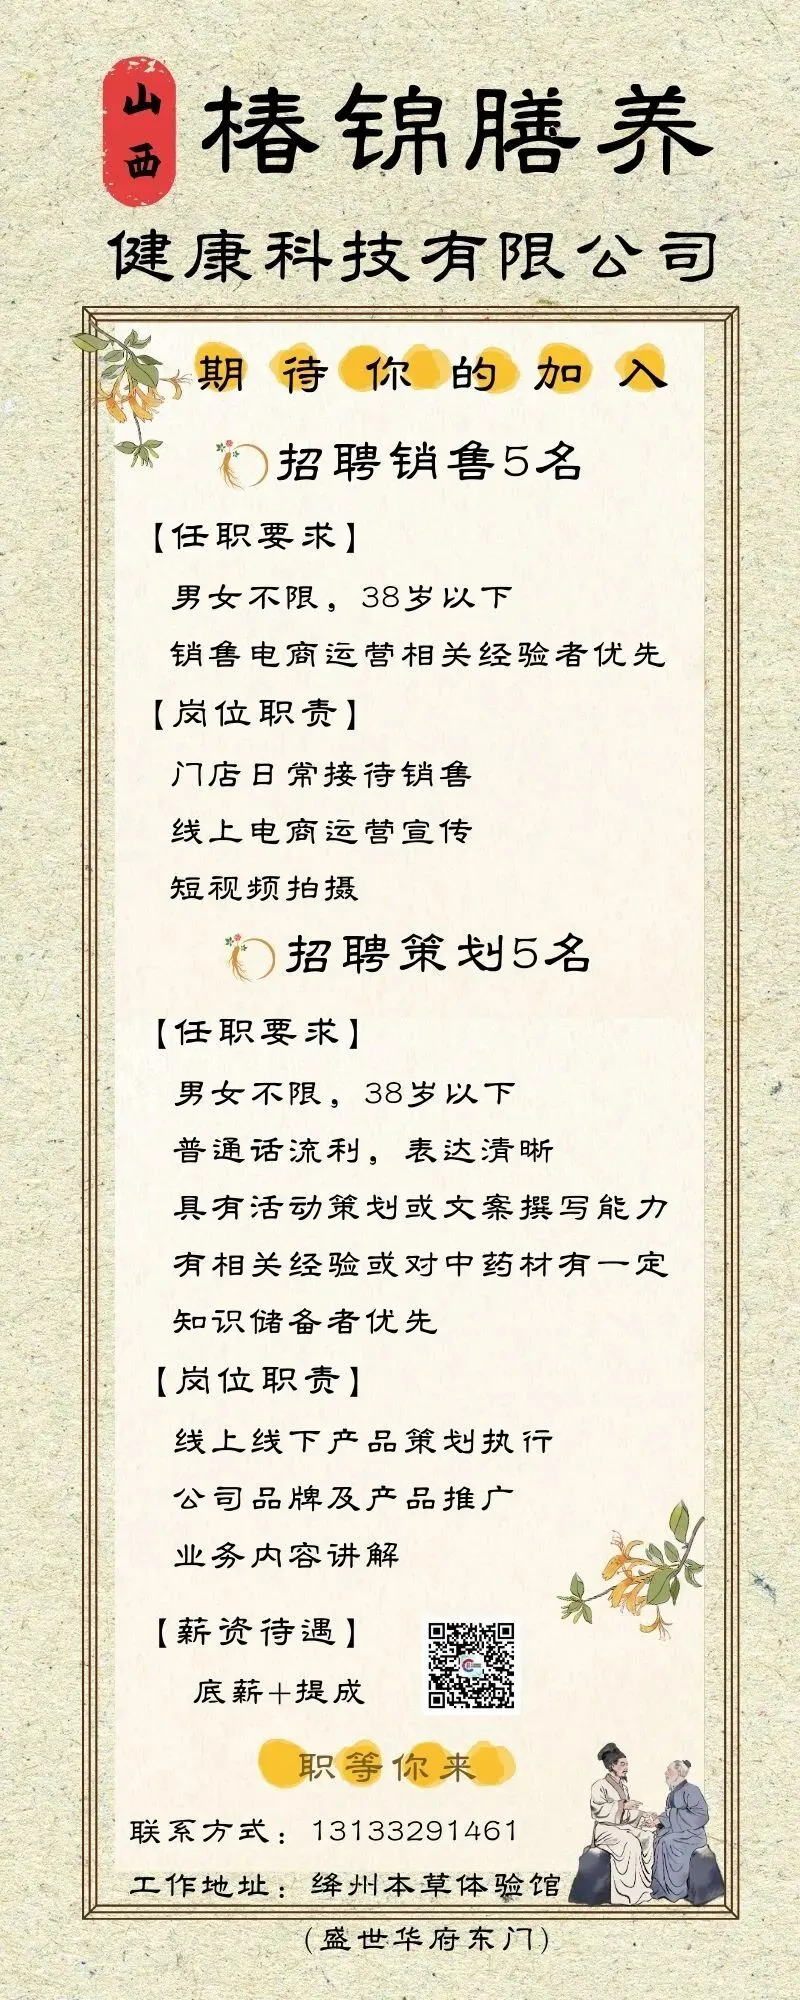 山西
椿锦膳养
健康科技有限公司
期待你的加入
招聘销售5名
【任职要求】
男女不限，38岁以下
销售电商运营相关经验者优先
【岗位职责】
门店日常接待销售
线上电商运营宣传
短视频拍摄
招聘策划5名
【任职要求】
男女不限，38岁以下
普通话流利，表达清晰
具有活动策划或文案撰写能力
有相关经验或对中药材有一定
知识储备者优先
【岗位职责】
线上线下产品策划执行
公司品牌及产品推广
业务内容讲解
【薪资待遇】
底薪+提成
职等你来
联系方式：13133291461
工作地址：绛州本草体验馆
(盛世华府东门)